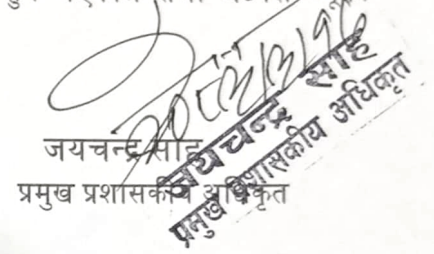 जयचन्द्र साह
प्रमुख प्रशासकीय अधिकृत
जयचन्द्र साह
प्रमुख प्रशासकीय अधिकृत